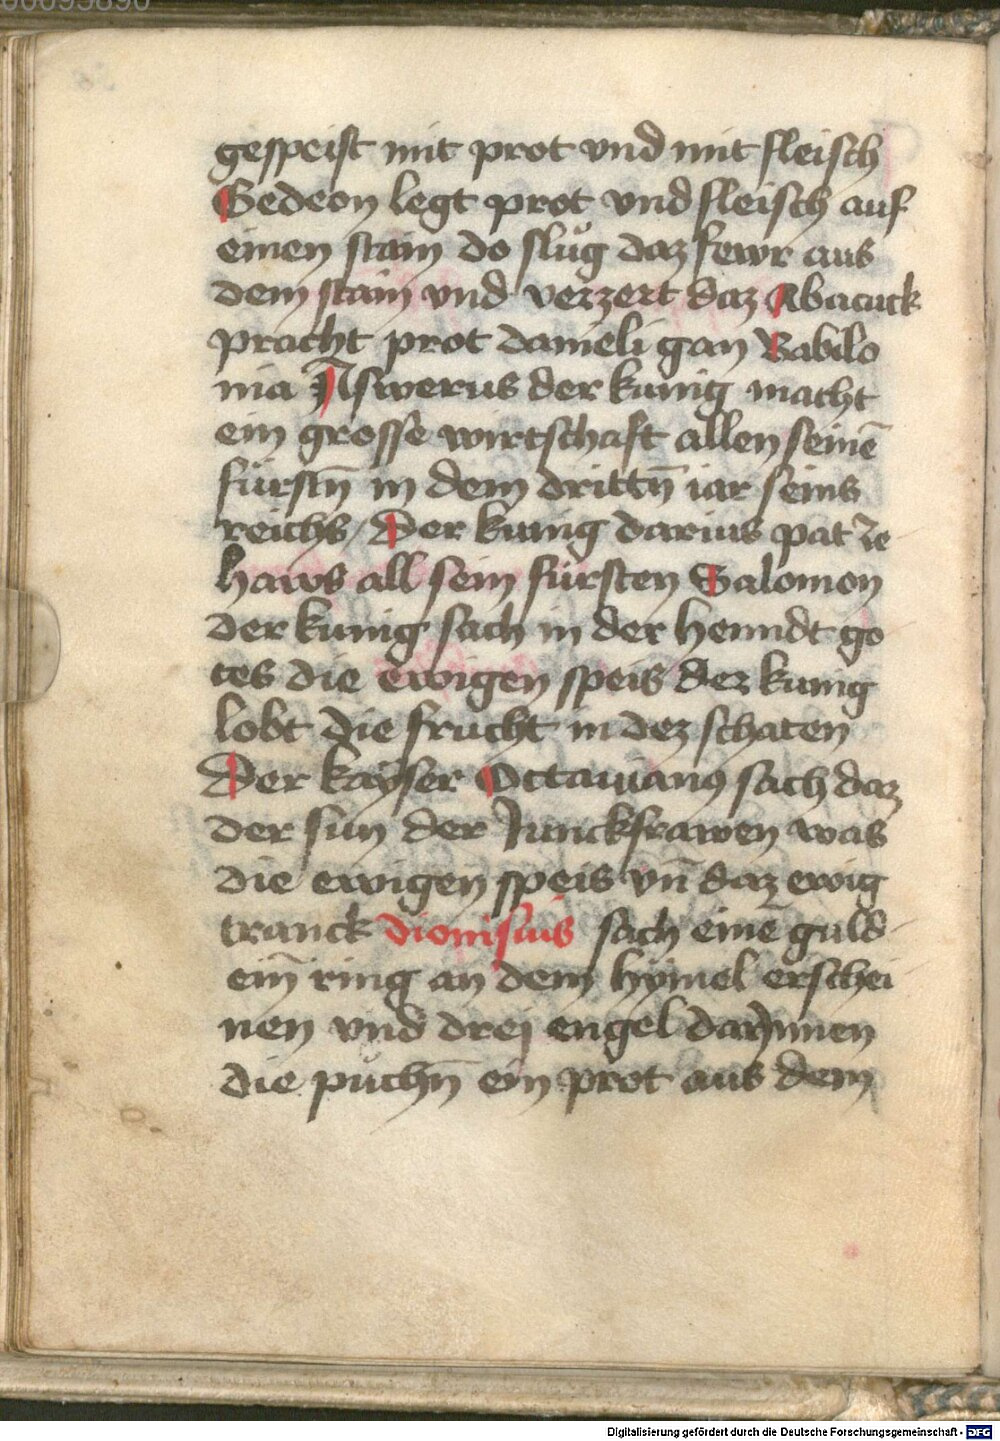 00095890
gespeist mit prot vnd mit fleisch
Gedeon legt prot vnd fleisch auf
einen stain do slůg daz fewr aus
dem stain vnd verzert daz Abacuck
pracht prot danieli gan Babilo
nia Aswerus der kunig macht
ein grosse wirtschaft allen seinē
fürstn̄ in dem drittn̄ iar seins
reichs / Der kunig darius pat ze
haws all sein fürsten Salomon
der kunig sach in der henndt go
tes die ewigen speis der kunig
lobt die frucht in dez schaten
Der kayser Octauianꝰ sach daz
der sun der Junckfrawen was
die ewigen speis vn̄ daz ewig
tranck dionisius sach einē guld
ein̄ ring an dem hymel erschei
nen vnd drej engel darJnnen
die půchn̄ ein prot aus dem
Digitalisierung gefördert durch die Deutsche Forschungsgemeinschaft - DFG